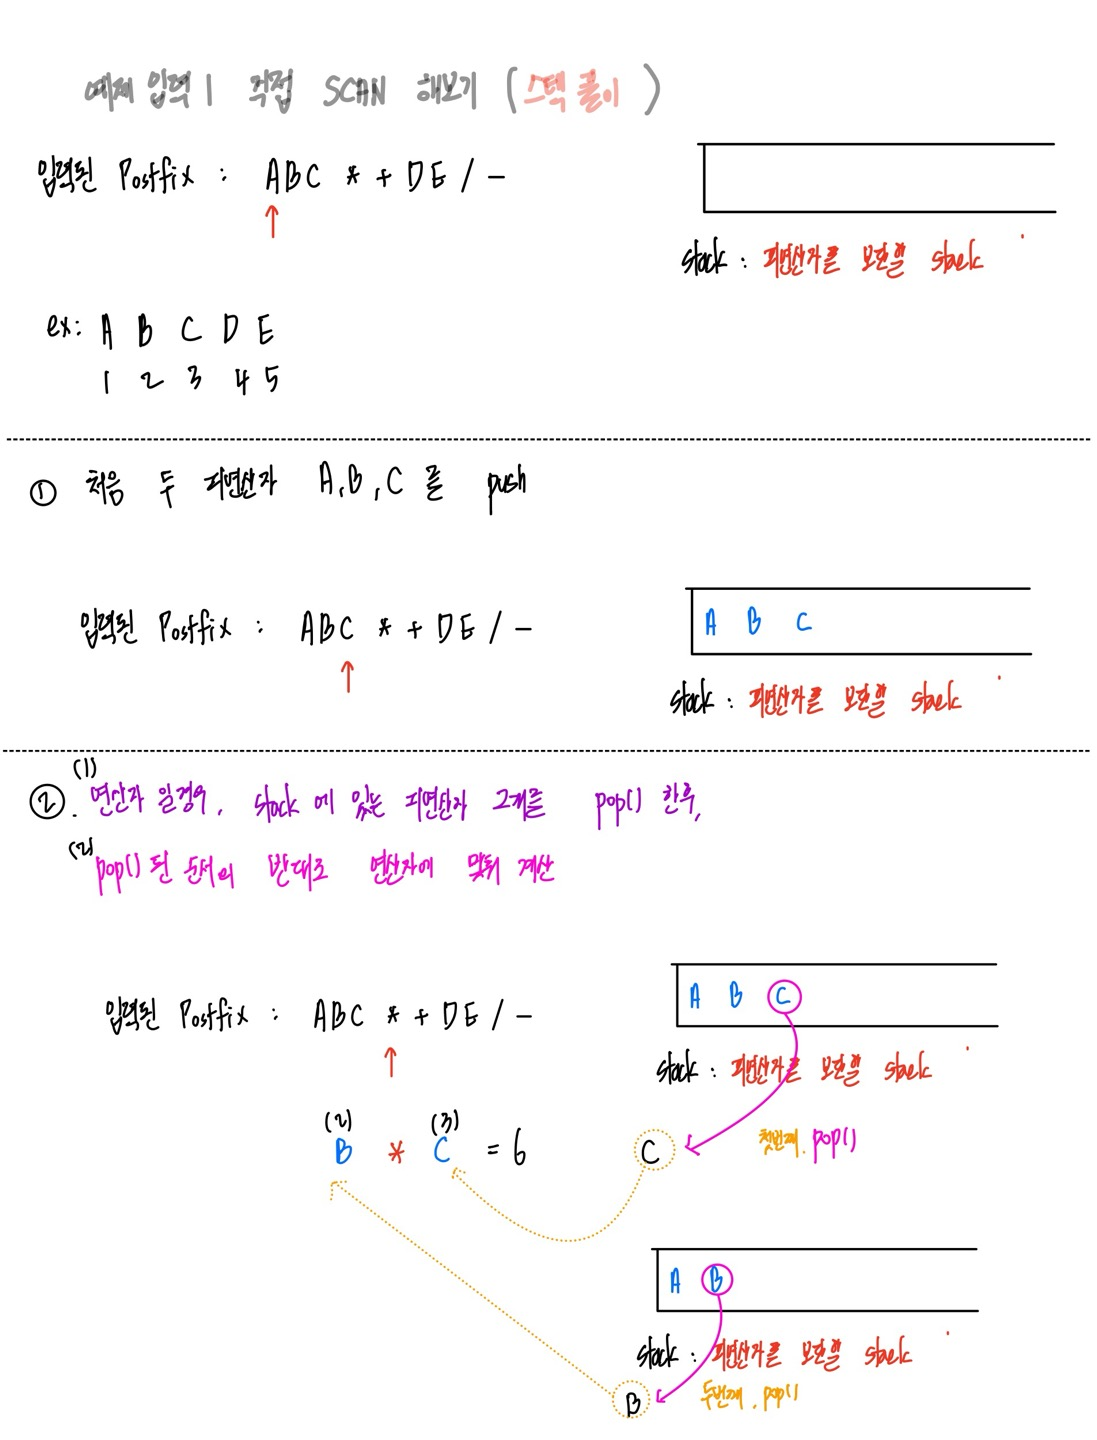 예제 입력 1 직접 SCAN 해보기 (스택 풀이)
입력된 Postfix : ABC * + DE / -
stack : 피연산자를 보관할 stack
ex: A B C D E
1 2 3 4 5
① 처음 두 피연산자 A, B, C 를 push
입력된 Postfix : ABC * + DE / -
A B C
stack : 피연산자를 보관할 stack
②. (1) 연산자 일경우, stack 에 있는 피연산자 2개를 pop() 한후,
(2) pop() 된 순서의 반대로 연산자에 맞춰 계산
A B C
입력된 Postfix : ABC * + DE / -
stack : 피연산자를 보관할 stack
(2) (3)
B * C = 6
C 첫번째. pop()
A B
stack : 피연산자를 보관할 stack
B 두번째. pop()